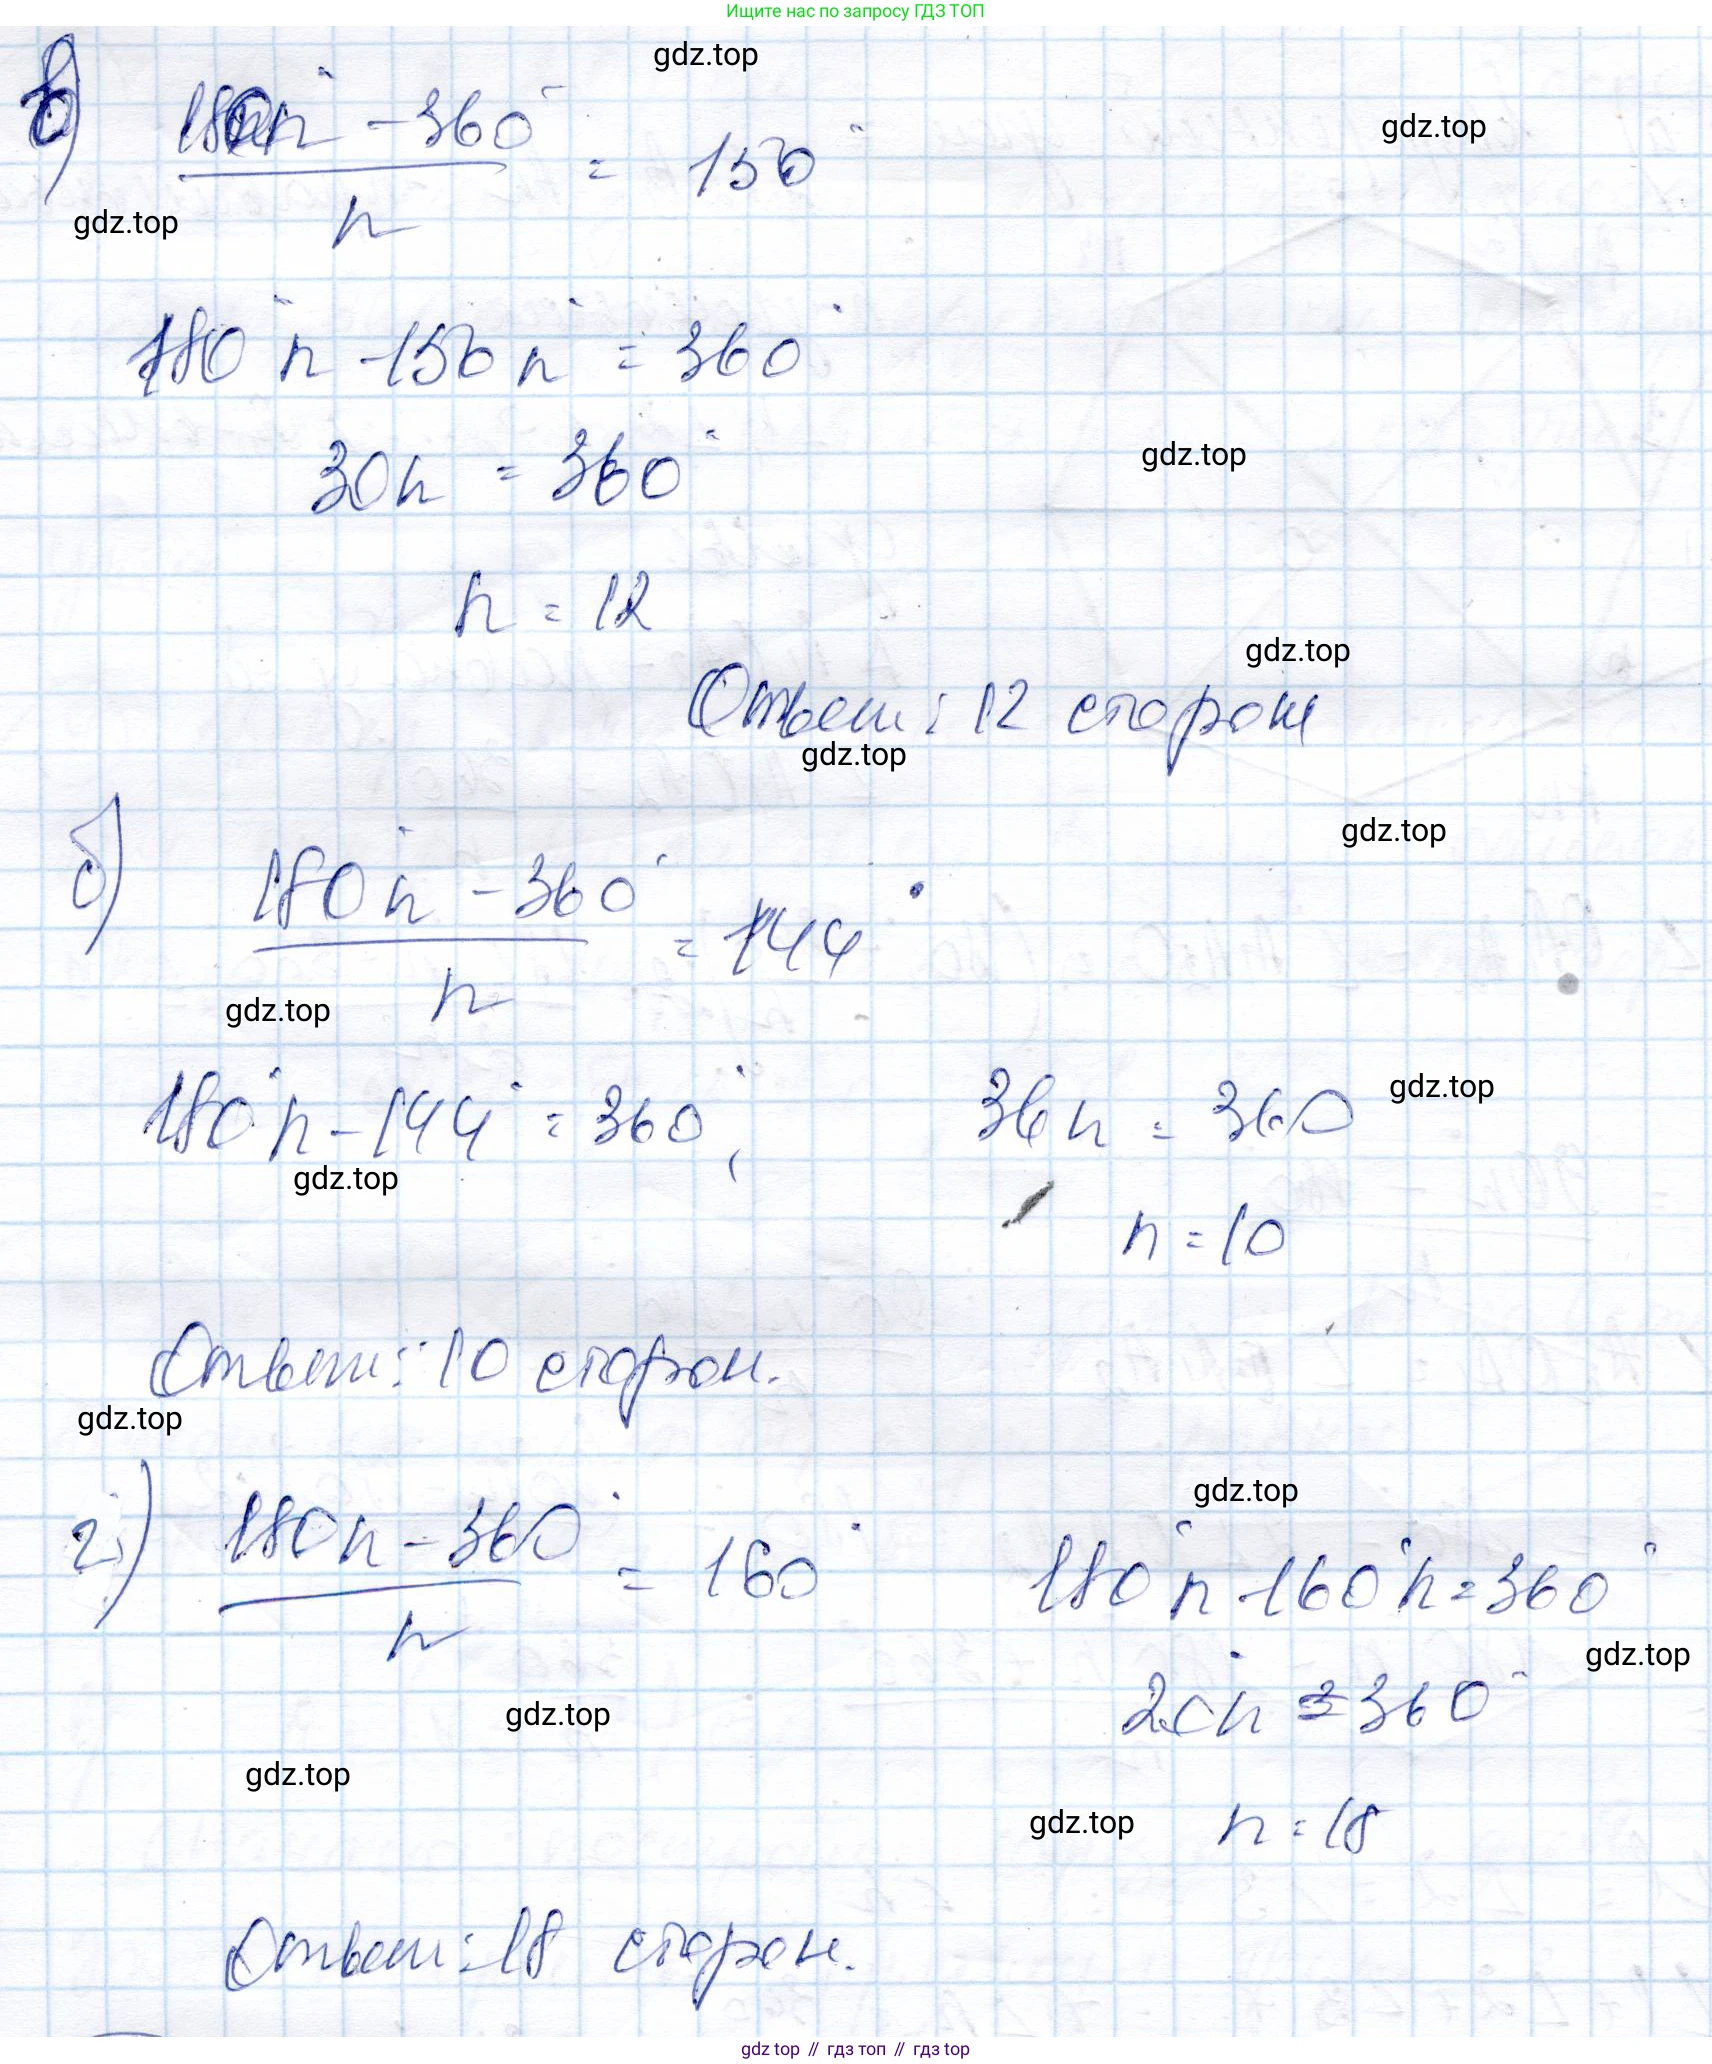 Ищите нас по запросу ГДЗ ТОП
gdz.top
gdz.top
в) (180°n - 360°)/n = 150°
gdz.top
180°n - 150°n = 360°
gdz.top
30n = 360°
n = 12
gdz.top
Ответ: 12 сторон
gdz.top
gdz.top
б) (180°n - 360°)/n = 144°
gdz.top
180°n - 144° = 360°, 36n = 360
gdz.top
gdz.top
n = 10
Ответ: 10 сторон.
gdz.top
gdz.top
г) (180n - 360°)/n = 160° 180°n - 160°n = 360°
gdz.top
20°n = 360°
gdz.top
gdz.top
gdz.top
n = 18
Ответ: 18 сторон.
gdz top // гдз топ // гдз top